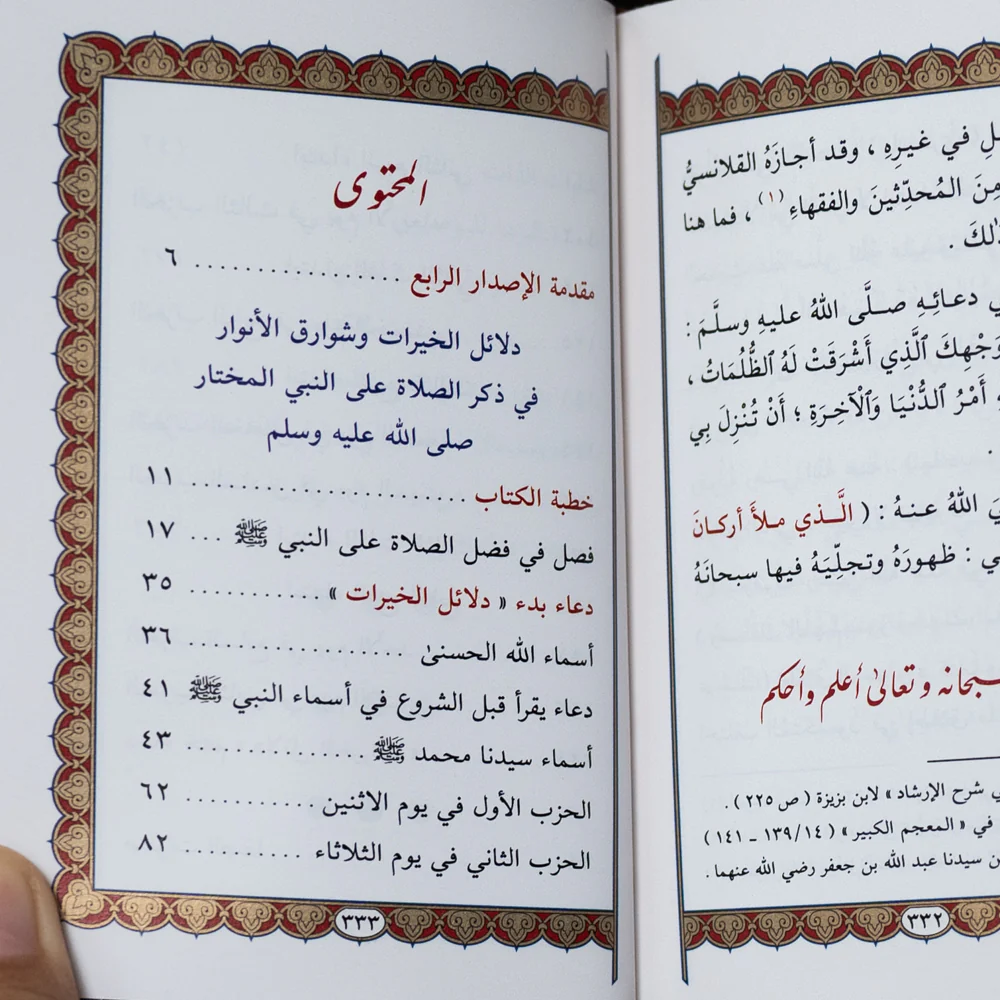 ـل في غيرِهِ ، وقد أجازَهُ القلانسيُّ
مِنَ المُحدِّثينَ والفقهاءِ (١) ، فما هنا
ذٰلكَ .
ي دعائِهِ صلَّى اللهُ عليهِ وسلَّمَ :
وَجْهِكَ ٱلَّذِي أَشْرَقَتْ لَهُ ٱلظُّلُمَاتُ ،
أَمْرُ ٱلدُّنْيَا وَٱلْآخِرَةِ ؛ أَنْ تُنْزِلَ بِي
.
يَ اللهُ عنهُ : ( الَّذي ملأَ أركانَ
ي : ظهورَهُ وتجلِّيَهُ فيها سبحانَهُ
سبحانه وتعالىٰ أعلم وأحكم
ي شرح الإرشاد » لابن بزيزة ( ص ٢٢٥ ) .
في « المعجم الكبير » ( ١٣٩/١٤ ـ ١٤١ )
ن سيدنا عبد الله بن جعفر رضي الله عنهما .
٣٣٢
المحتوى
مقدمة الإصدار الرابع ................. ٦
دلائل الخيرات وشوارق الأنوار
في ذكر الصلاة على النبي المختار
صلى الله عليه وسلم
خطبة الكتاب ........................ ١١
فصل في فضل الصلاة على النبي ﷺ ... ١٧
دعاء بدء « دلائل الخيرات » ............ ٣٥
أسماء الله الحسنىٰ .................. ٣٦
دعاء يقرأ قبل الشروع في أسماء النبي ﷺ ٤١
أسماء سيدنا محمد ﷺ ............... ٤٣
الحزب الأول في يوم الاثنين ........... ٦٢
الحزب الثاني في يوم الثلاثاء .......... ٨٢
٣٣٣